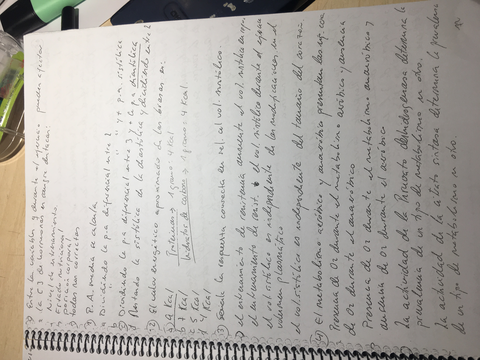 1) Entre las variables y durante el ejercicio pueden afectar
a la [ ] de hormonas en sangre destacan:
Nivel de entrenamiento
Estado nutricional
posición corporal
todas son correctas
3) P.A. media se calcula
Dividiendo la pa diferencial entre 2
Dividiendo la pa diferencial entre 3 y la p.a. diastólica
Restando la sistólica de la diastólica y dividiendo entre 2
2) El valor energético aproximado de las grasas es:
9 Kcal
7 Kcal
5 Kcal
4 Kcal
Proteínas → 1 gramo = 4 Kcal
Hidratos de carbono → 1 gramo = 4 Kcal
3) Señale la respuesta correcta en rel. al vol. sistólico.
el entrenamiento de resistencia aumenta el vol. sistólico en
el entrenamiento de resist. el vol. sistólico durante el ejercicio
el vol sistólico es independiente de las modificaciones en el
volumen plasmático
el vol sistólico es independiente del tamaño del corazón
4) El metabolismo aeróbico y anaeróbico presentan
Presencia de O2 durante el metabolismo aeróbico y ausencia
de O2 durante el anaeróbico
Presencia de O2 durante el metabolismo anaeróbico y
ausencia de O2 durante el aeróbico
La actividad de la Piruvato deshidrogenasa determina la
prevalencia de un tipo de metabolismo u otro.
La actividad de la citrato sintasa determina la prevalencia
de un tipo de metabolismo u otro.